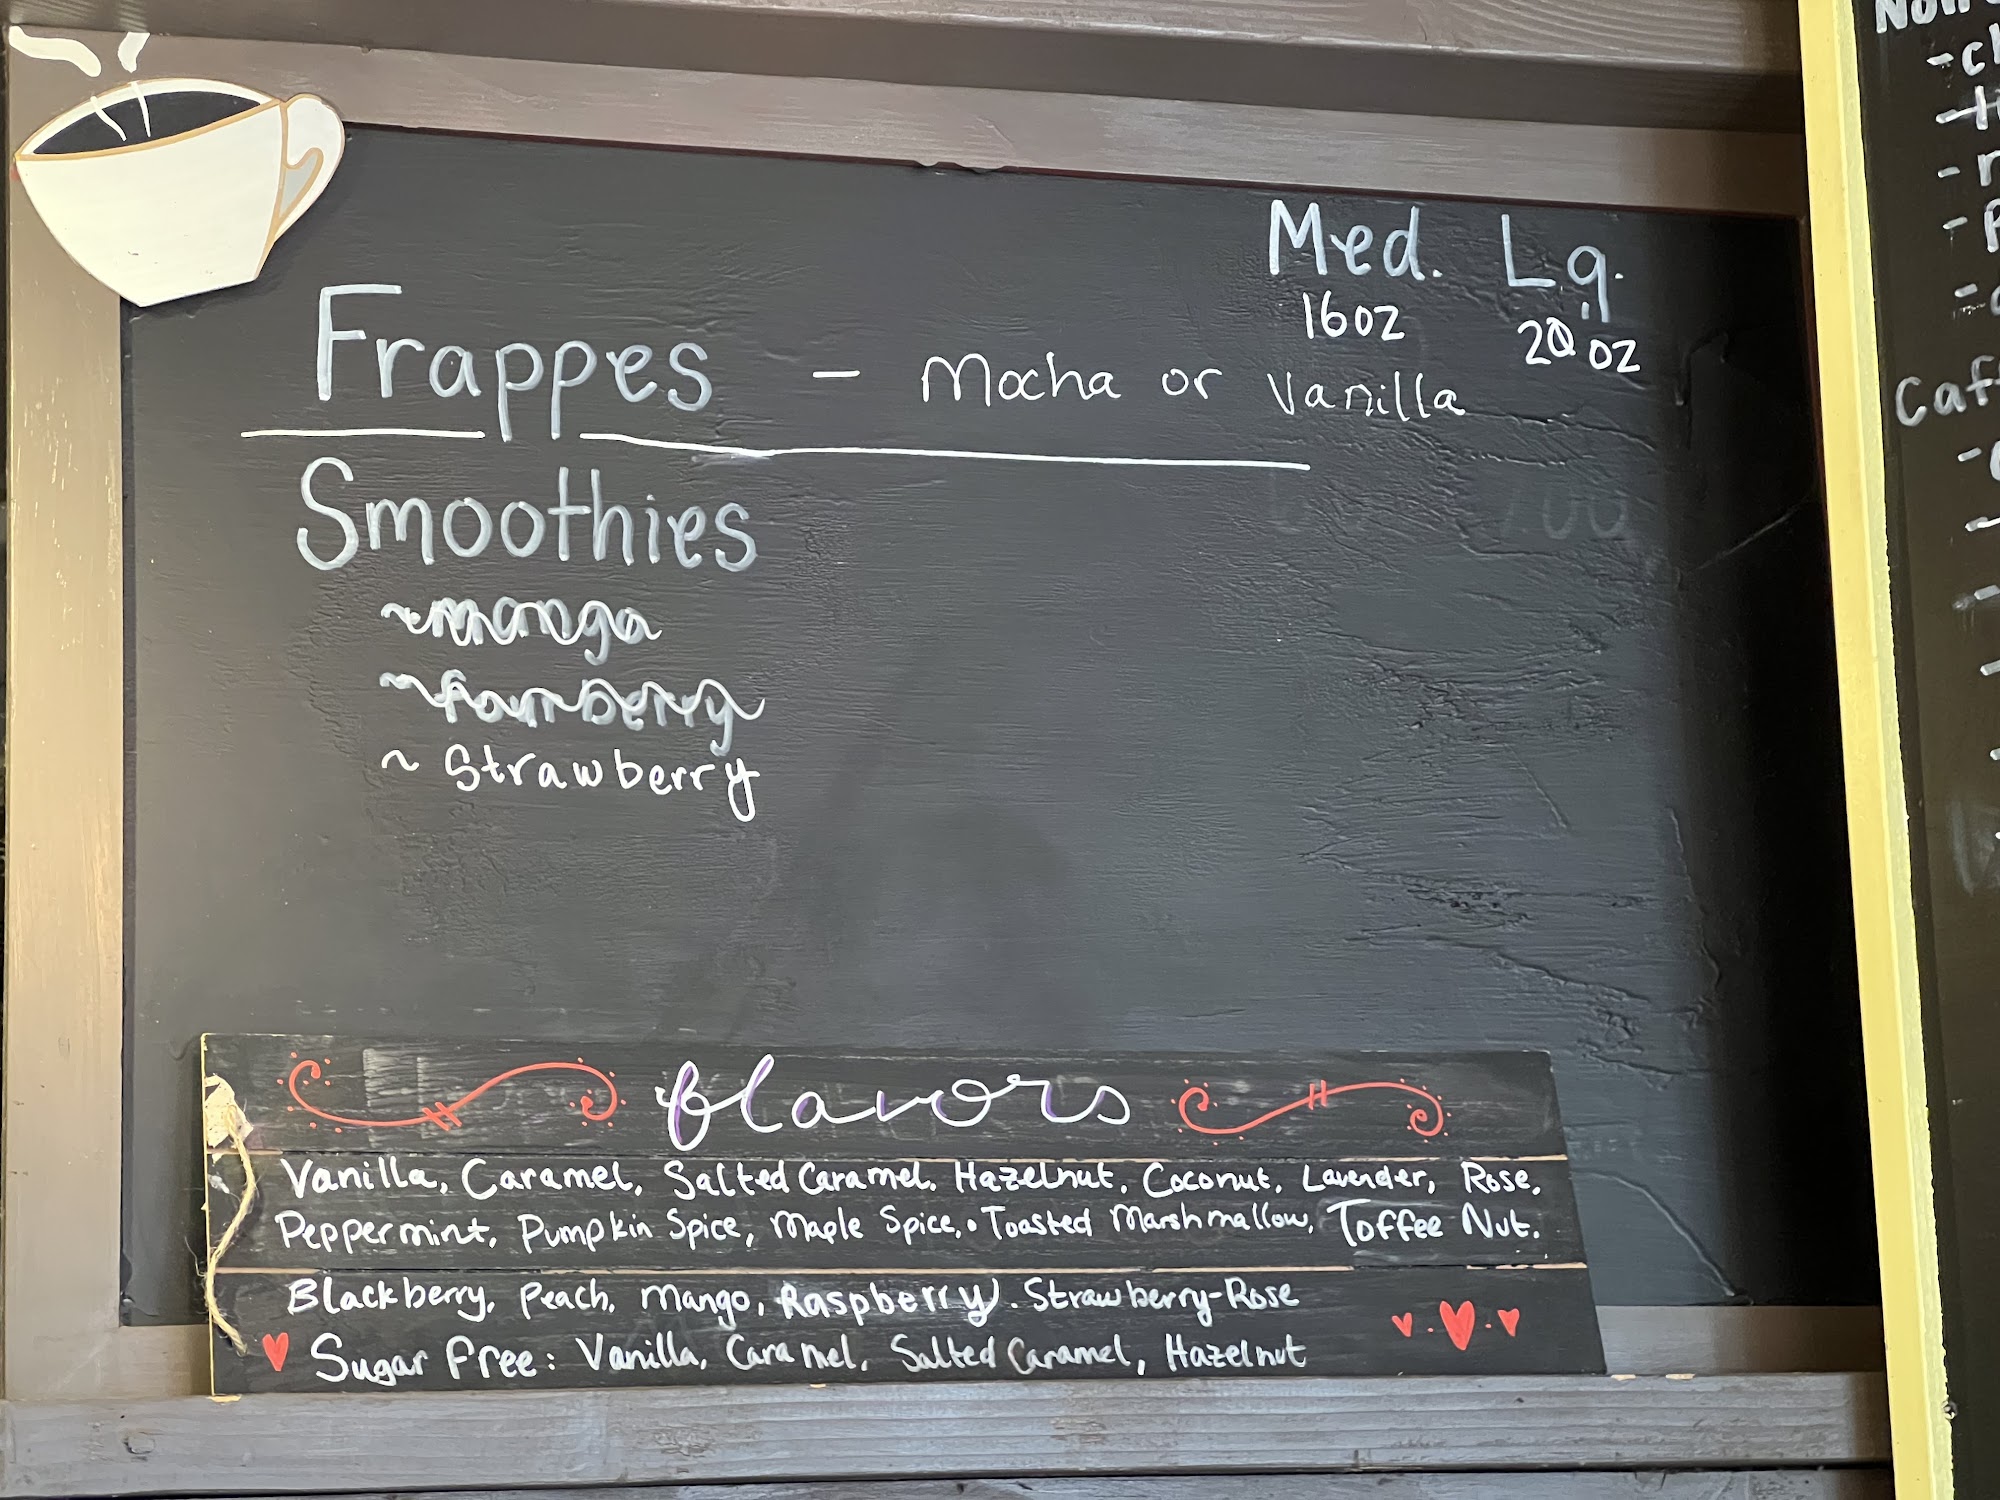 Med. Lg.
16oz 20 oz
Frappes - Mocha or Vanilla
Smoothies
~mango
~
~ Strawberry
flavors
Vanilla, Caramel, Salted Caramel, Hazelnut, Coconut, Lavender, Rose,
Peppermint, Pumpkin Spice, Maple Spice, • Toasted Marshmallow, Toffee Nut,
Blackberry, Peach, Mango, Raspberry, Strawberry-Rose
Sugar Free: Vanilla, Caramel, Salted Caramel, Hazelnut